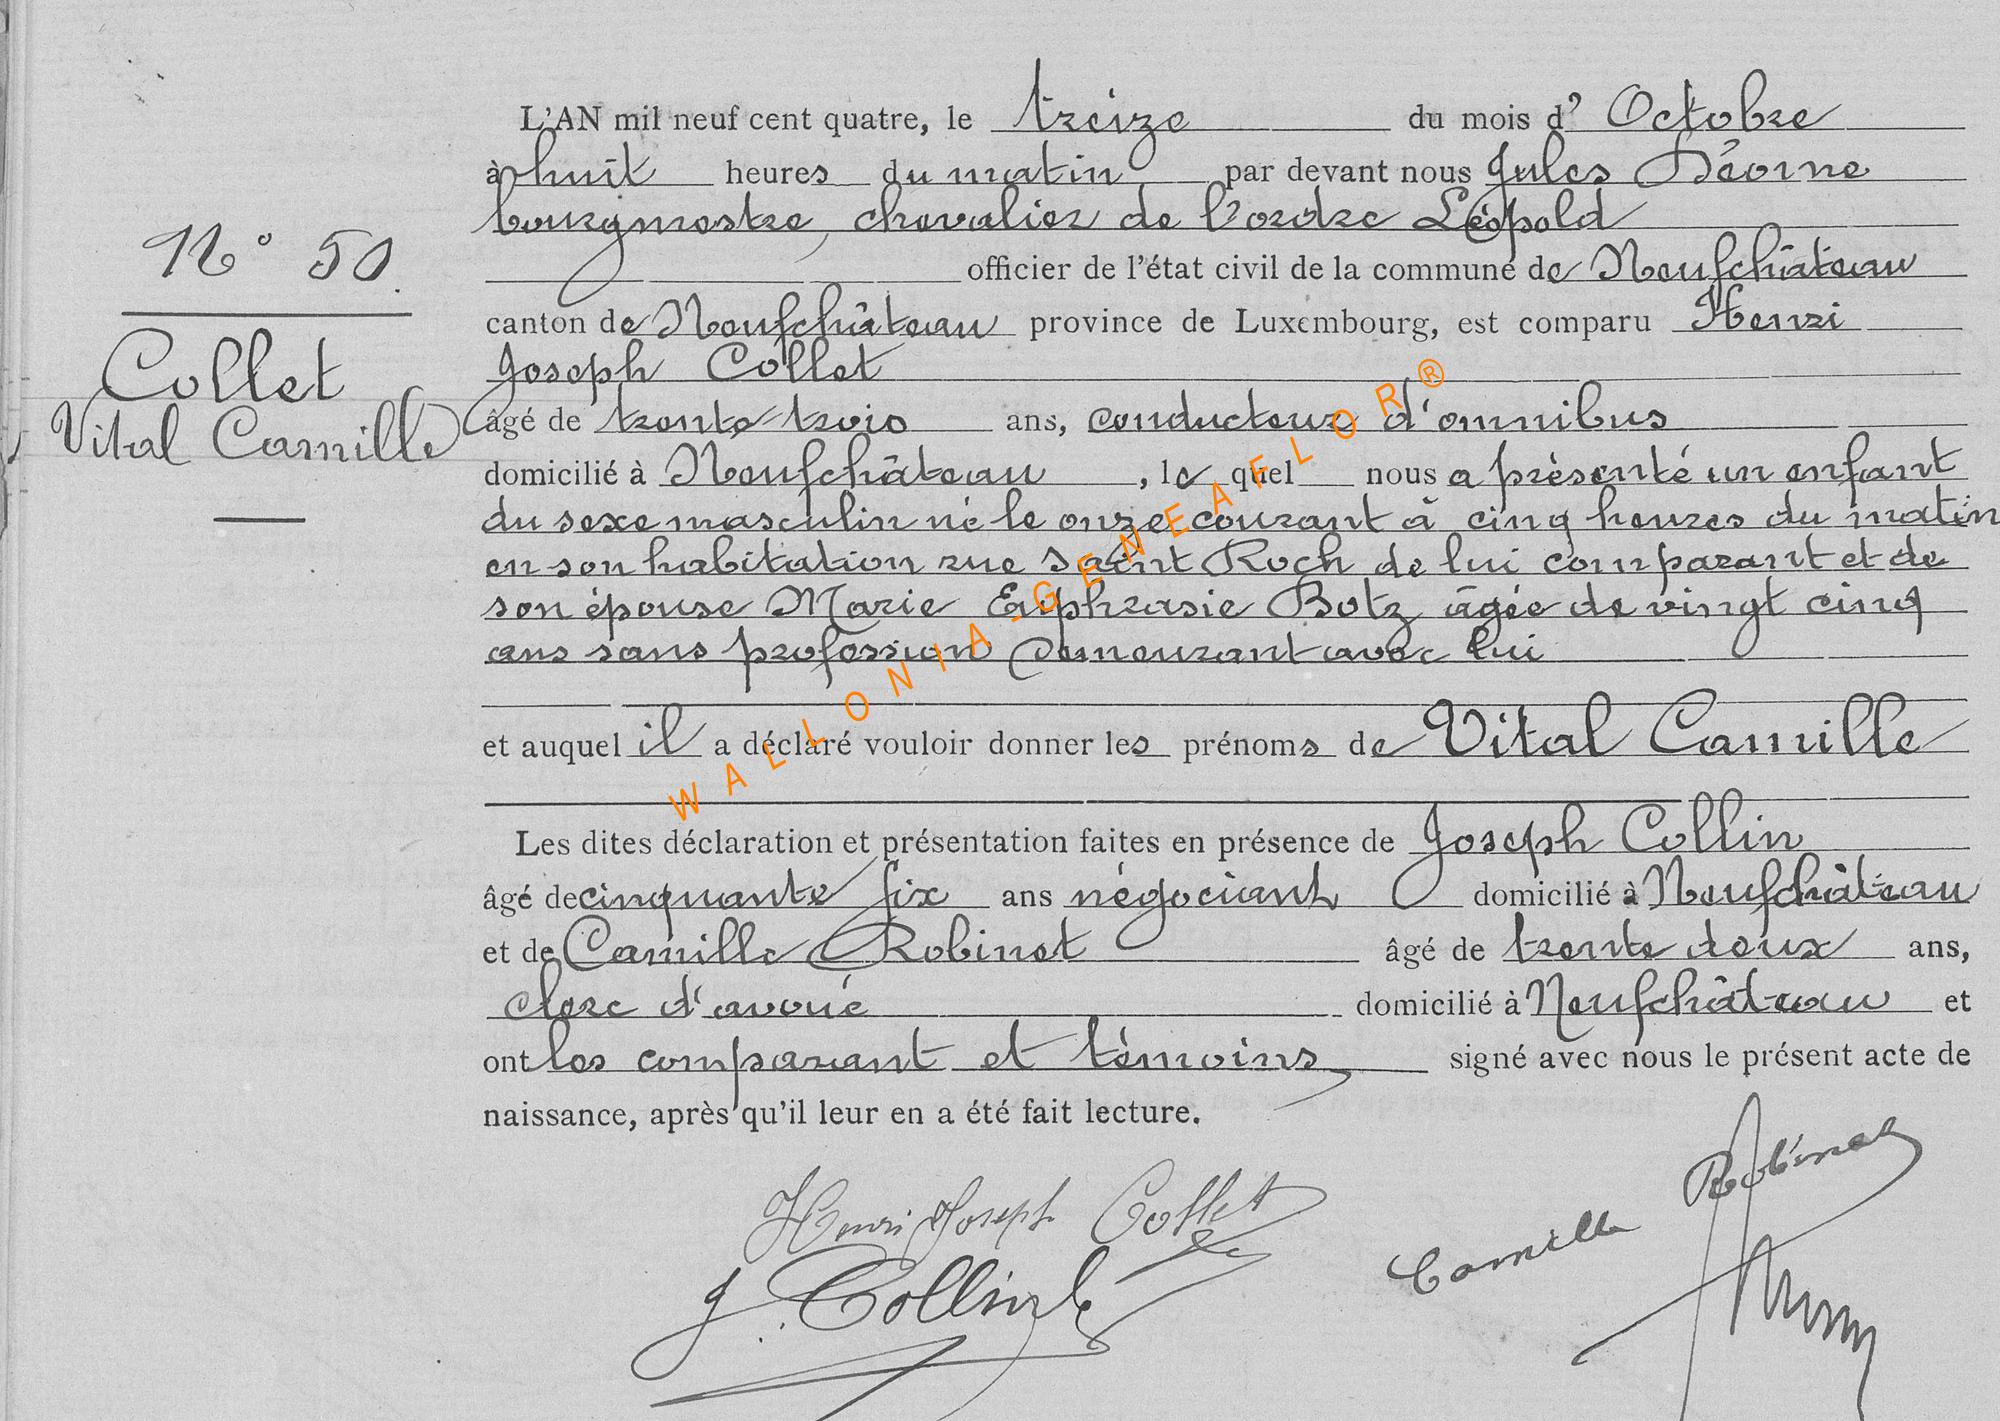 N° 50.
Collet
Vital Camille
L'AN mil neuf cent quatre, le treize du mois d' Octobre
à huit heures du matin par devant nous Jules
bourgmestre, chevalier de l'ordre Léopold
officier de l'état civil de la commune de Neufchâteau
canton de Neufchâteau province de Luxembourg, est comparu Henri
Joseph Collet
âgé de trente trois ans, conducteur d'omnibus
domicilié à Neufchâteau, le quel nous a présenté un enfant
du sexe masculin né le onze courant à cinq heures du matin
en son habitation rue Saint Roch de lui comparant et de
son épouse Marie Euphrasie Botz âgée de vingt cinq
ans sans profession demeurant avec lui
et auquel il a déclaré vouloir donner les prénoms de Vital Camille
Les dites déclaration et présentation faites en présence de Joseph Collin
âgé de cinquante six ans négociant domicilié à Neufchâteau
et de Camille Robinet âgé de trente deux ans,
clerc d'avoué domicilié à Neufchâteau et
ont les comparant et témoins signé avec nous le présent acte de
naissance, après qu'il leur en a été fait lecture.
Henri Joseph Collet
J. Collin
Camille Robinet
WALLONIA-GENEAFLOR®